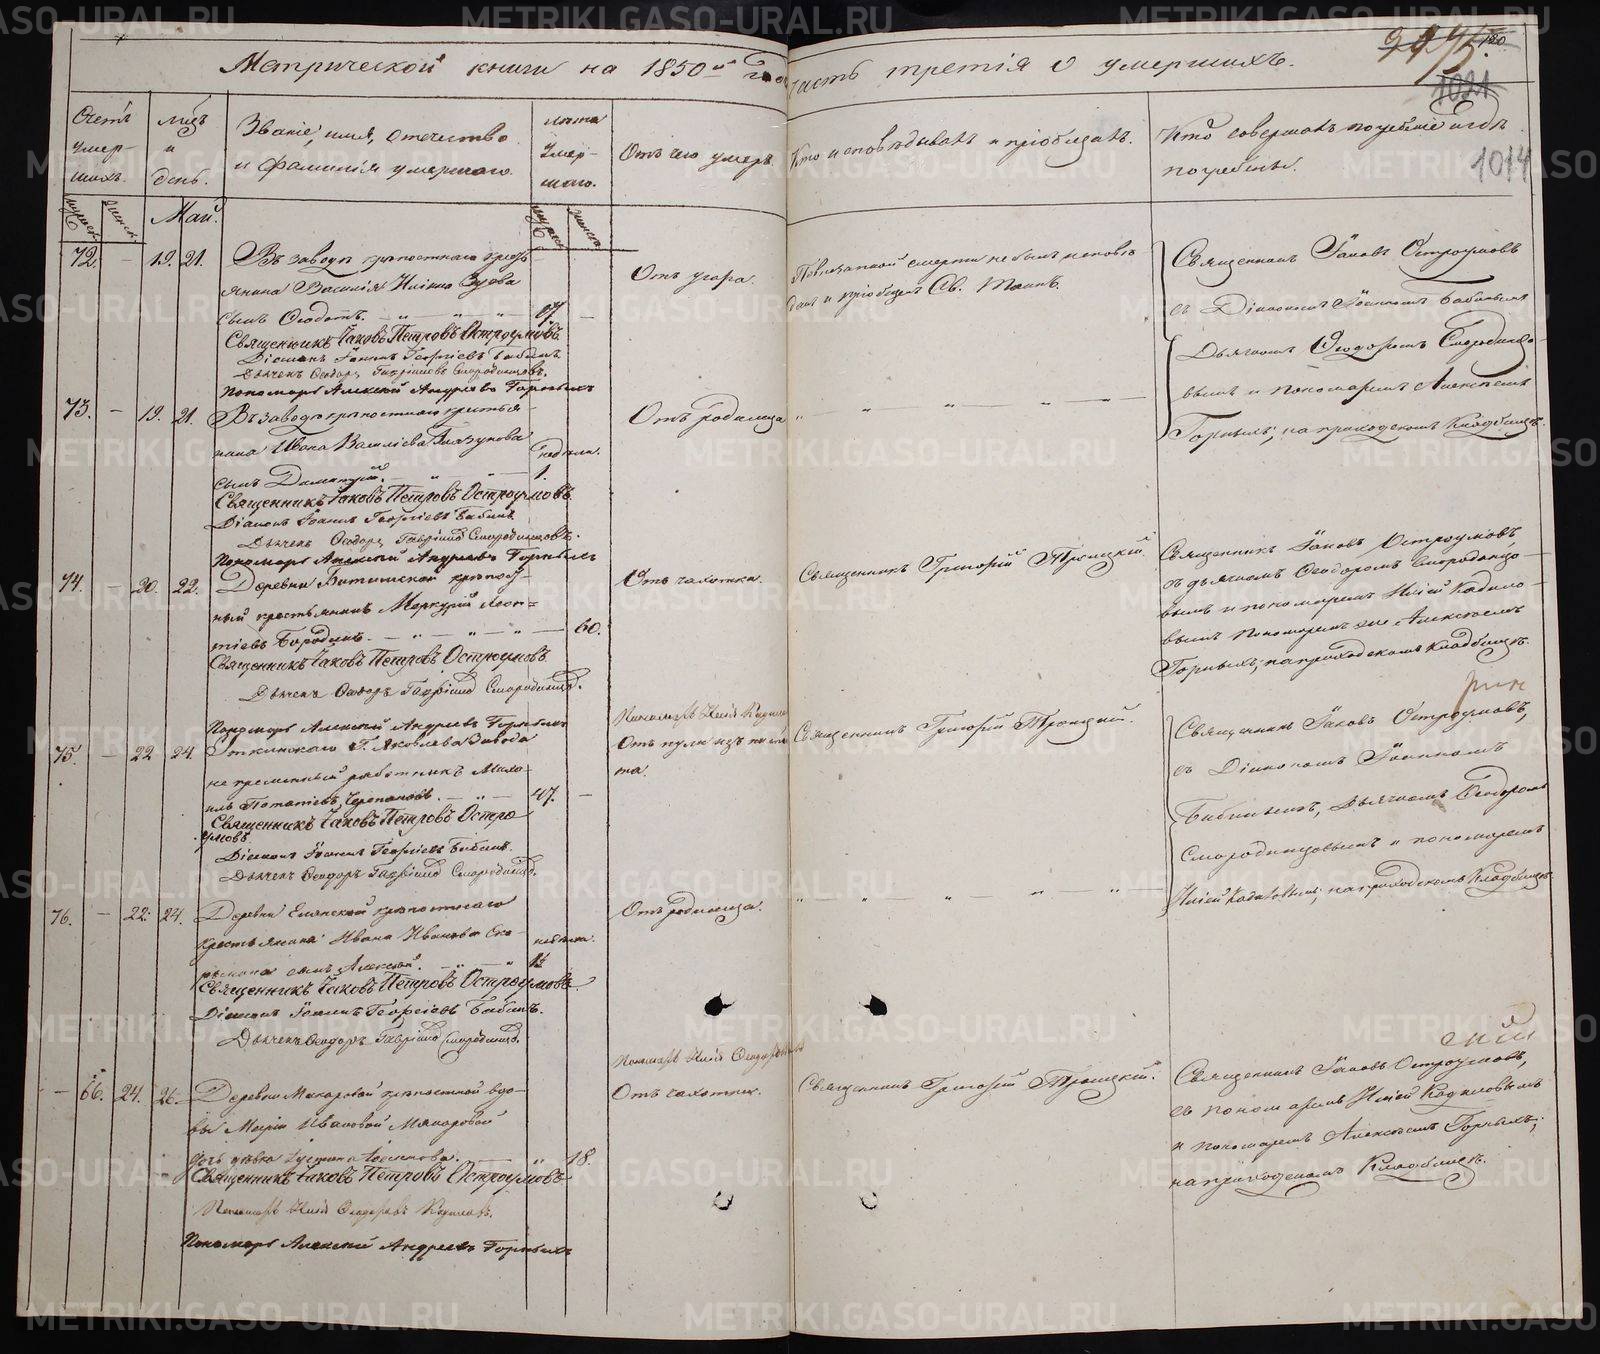 Метрической книги на 1850й Годъ
часть третія о умершихъ.
1014
Счетъ умер- шихъ.
мцъ и день.
Званіе, имя, отечество
и фамилія умершаго.
лѣта умер- шаго.
Отъ чего умеръ
Кто исповѣдывалъ и пріобщалъ.
Кто совершалъ погребеніе и гдѣ
погребены.
мужеск. женск.
Май.
мужеск. женск.
72. — 19. 21.
Въ заводѣ крѣпостнаго кресть
янина Василія
сынъ Ѳеодотъ. — — — —
Священникъ Іаковъ Петровъ Остроумовъ.
Діаконъ Іоаннъ Георгіевъ Бабинъ
Дьячекъ Ѳеодоръ Гавріиловъ Смородинцовъ.
Пономарь Алексѣй Андреевъ Горныхъ
Отъ угара.
По внезапной смерти не былъ исповѣ
данъ и пріобщенъ Св. Таинъ.
Священникъ Іаковъ Остроумовъ
съ Діакономъ Іоанномъ Бабинымъ
Дьячкомъ Ѳеодоромъ Смородинцо-
вымъ и пономаремъ Алексѣемъ
Горныхъ; на приходскомъ Кладбищѣ.
73. — 19. 21.
Въ заводѣ крѣпостнаго крестья-
нина Ивана Васильева Глазунова
недѣли.
сынъ 1.
Священникъ Іаковъ Петровъ Остроумовъ.
Діаконъ Іоаннъ Георгіевъ Бабинъ
Дьячекъ Ѳеодоръ Гавріиловъ Смородинцовъ.
Пономарь Алексѣй Андреевъ Горныхъ
Отъ родимца
74. — 20. 22.
Деревни крѣпост-
ный крестьянинъ Меркурій
Бородинъ. — — — — 60.
Священникъ Іаковъ Петровъ Остроумовъ
Дьячекъ Ѳеодоръ Гавріиловъ Смородинцовъ.
Пономарь Алексѣй Андреевъ Горныхъ
Пономарь Илія
Отъ чахотки.
Священникъ Григорій Троицкій.
Священникъ Іаковъ Остроумовъ
съ дьячкомъ Ѳеодоромъ Смородинцо-
вымъ и пономаремъ Иліей Кадило-
вымъ пономаремъ же Алексѣемъ
Горныхъ; на приходскомъ кладбищѣ.
75. — 22 24.
Г. Яковлева Завода
непременный работникъ Миха-
илъ Потапіевъ Черепановъ. — — 47. —
Священникъ Іаковъ Петровъ Остро
умовъ.
Діаконъ Іоаннъ Георгіевъ Бабинъ.
Дьячекъ Ѳеодоръ Гавріиловъ Смородинцовъ.
Священникъ Григорій Троицкій.
Священникъ Іаковъ Остроумовъ,
съ Діакономъ Іоанномъ
Бабинымъ, Дьячкомъ Ѳеодоромъ
Смородинцовымъ и пономаремъ
Иліей Кадиловымъ; на приходскомъ Кладбищѣ.
76. — 22. 24.
Деревни крѣпостнаго
крестьянина Ивана Иванова
недѣли.
сынъ Алексѣй. — —
Священникъ Іаковъ Петровъ Остроумовъ.
Діаконъ Іоаннъ Георгіевъ Бабинъ.
Дьячекъ Ѳеодоръ Гавріиловъ Смородинцовъ.
Пономарь Илія Ѳеодоровъ
Отъ родимца.
— 66. 24. 26.
Деревни Макаровой крѣпостной вдо-
вы Маріи Ивановой Макаровой
дочь дѣвка 18.
Священникъ Іаковъ Петровъ Остроумовъ
Пономарь Илія Ѳеодоровъ Кадиловъ.
Пономарь Алексѣй Андреевъ Горныхъ
Отъ чахотки.
Священникъ Григорій Троицкій.
Священникъ Іаковъ Остроумовъ,
съ пономаремъ Иліей Кадиловымъ
и пономаремъ Алексѣемъ Горныхъ;
на приходскомъ Кладбищѣ.
METRIKI.GASO-URAL.RU